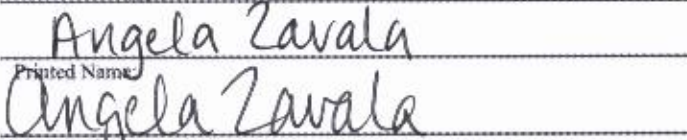 Angela Zavala
Printed Name:
Angela Zavala